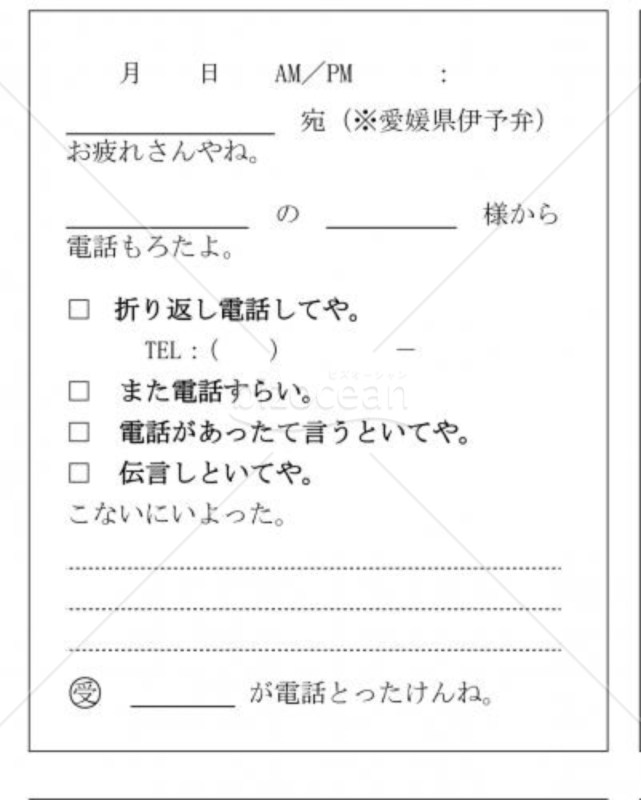 月 日 AM／PM :
＿＿＿＿＿＿＿＿ 宛（※愛媛県伊予弁）
お疲れさんやね。
＿＿＿＿＿＿＿ の ＿＿＿＿＿ 様から
電話もろたよ。
□ 折り返し電話してや。
TEL：( ) －
□ また電話すらい。
ビズオーシャン
bizocean
□ 電話があったて言うといてや。
□ 伝言しといてや。
こないにいよった。
㊝ ＿＿＿＿ が電話とったけんね。